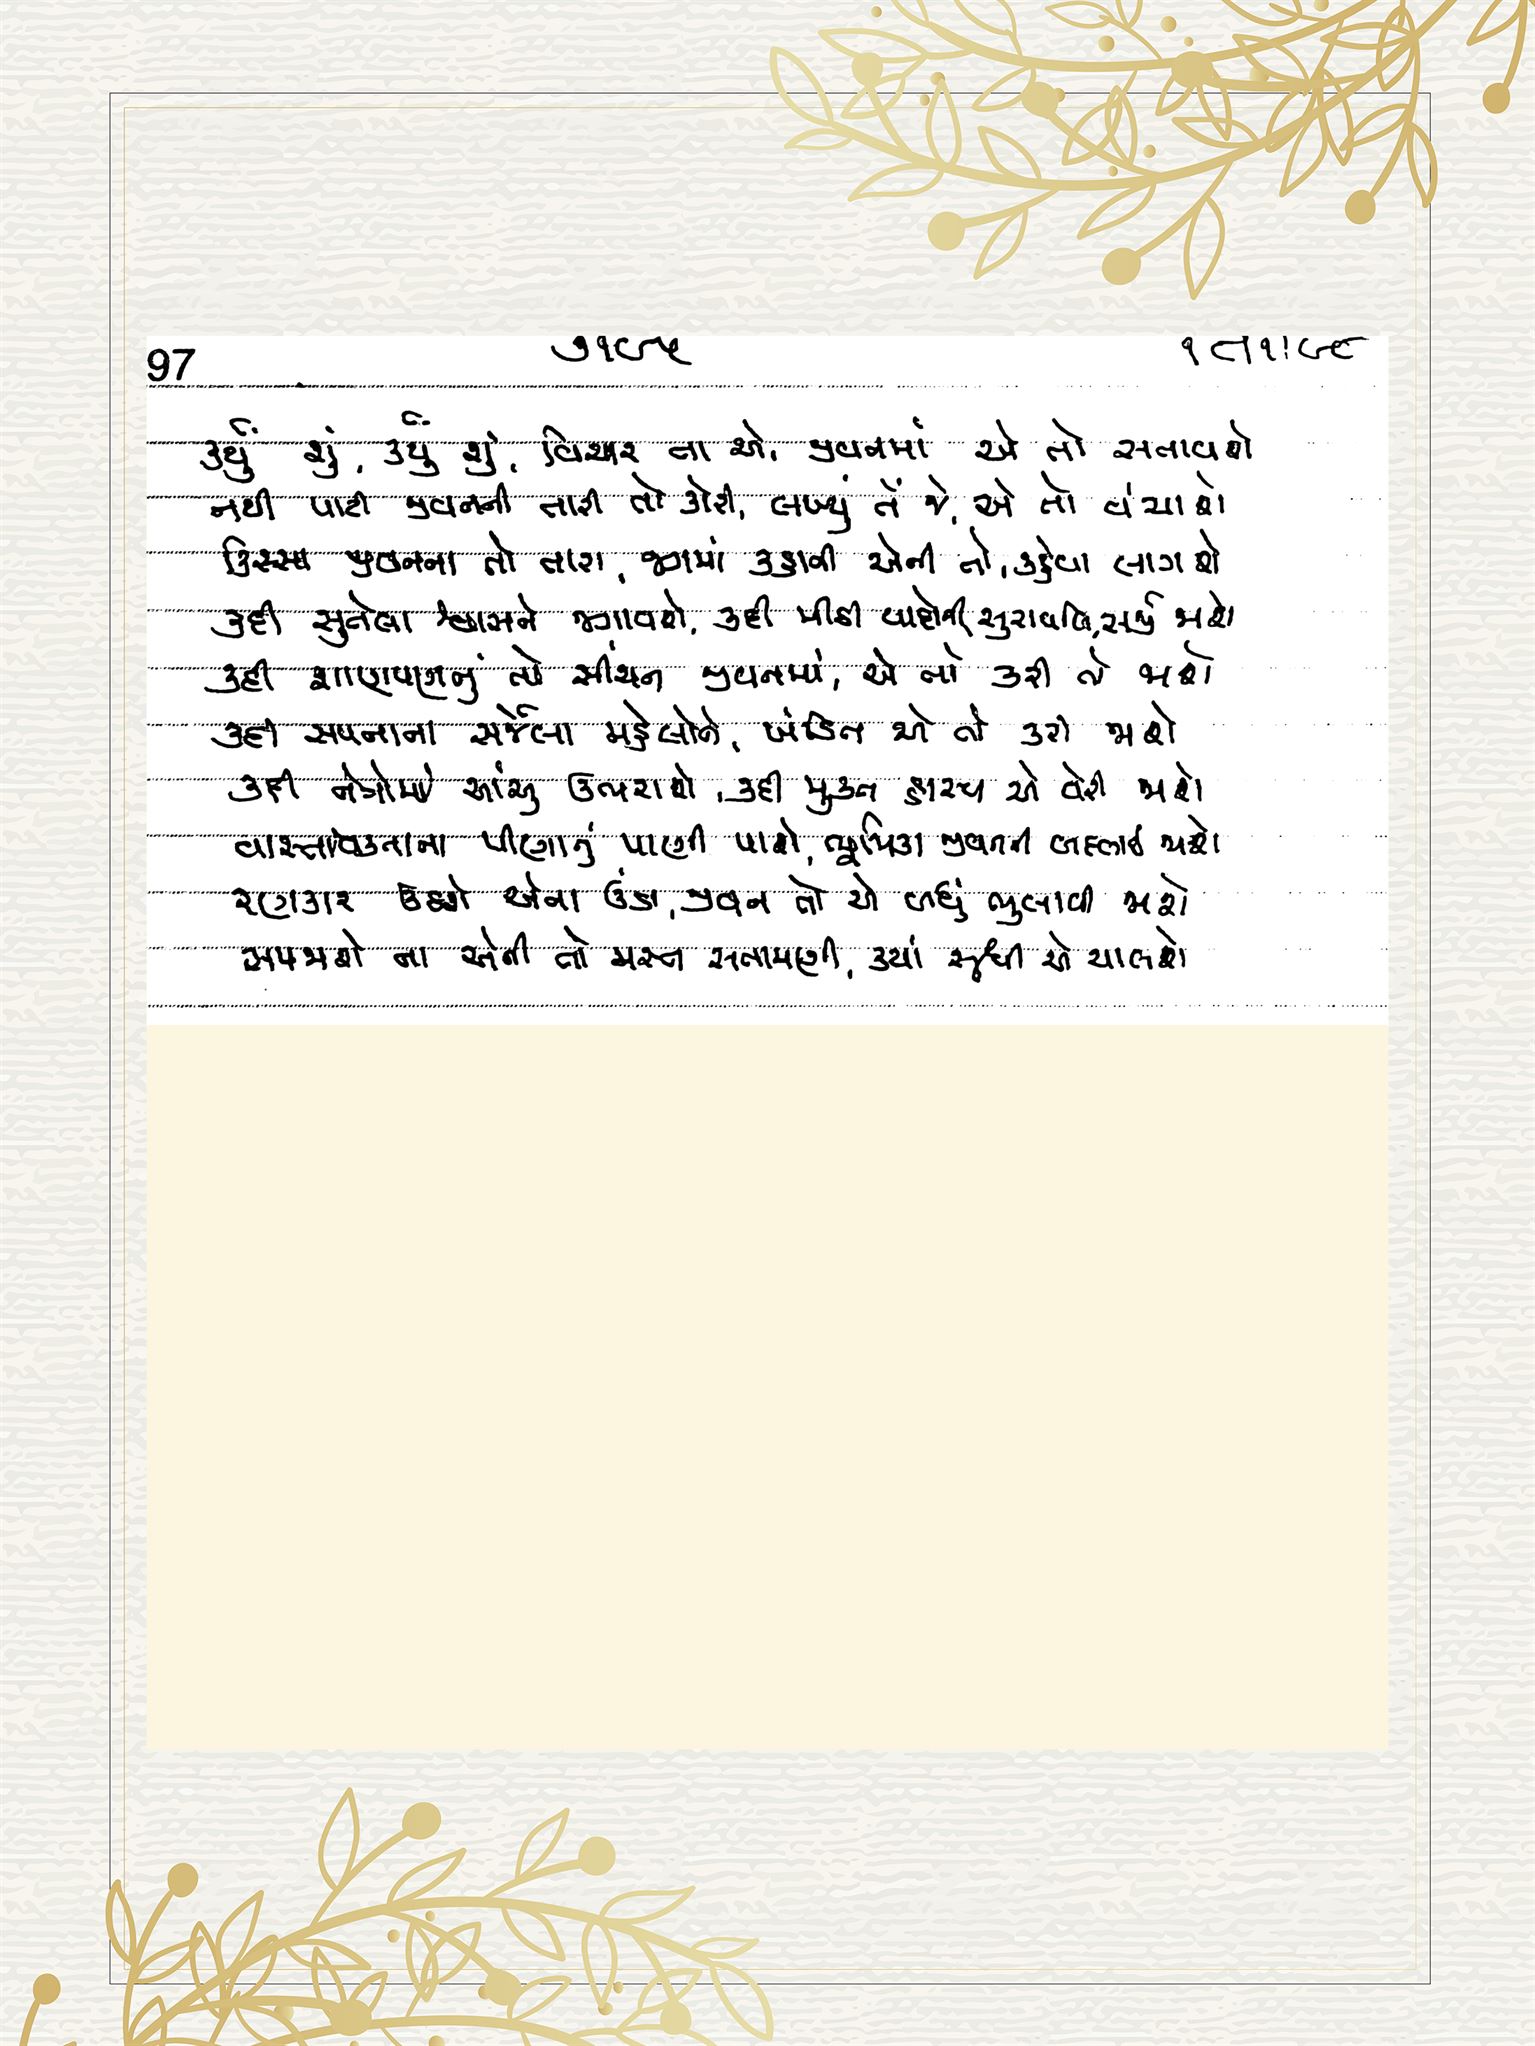 97 ૭૧૯૫
કર્યું શું, કર્યું શું, વિચાર ના એ, જીવનમાં એ તો સતાવશે
નથી પાટી જીવનની તારી તો કોરી, લખ્યું તેં જે, એ તો વંચાશે
કિસ્સા જીવનના તો તારા, જગમાં કહાની એની તો, કહેવા લાગશે
કદી સુતેલા શ્વાસને જગાવશે, કદી મીઠી યાદોની સુરાવલિ, સર્જી જાશે
કદી શાણપણનું તો સીંચન જીવનમાં, એ તો કરી તો જાશે
કદી સપનાના સર્જેલા મહેલોને, ખંડિત એ તો કરી જાશે
કદી નેત્રોમાં આંસુ ઉભરાશે, કદી મુક્ત હાસ્ય એ વેરી જાશે
વાસ્તવિકતાના પીણાનું પાણી પાશે, ભૂમિકા જીવનની બદલાઈ જાશે
રણકાર ઉઠશે એના ઉંડા, જીવન તો એ બધું ભુલાવી જાશે
સમજાશે ના એની તો મસ્ત સતામણી, ક્યાં સૂધી એ ચાલશે